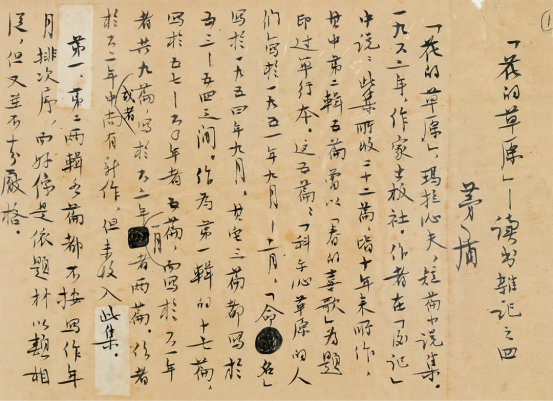 ①
「花的草原」—读书雜记之四
茅盾
「花的草原」,玛拉沁夫,短篇小说集。
一九六二年作家出版社。作者在「后记」
中说:此集所收二十二篇,皆十年来所作,
其中第一輯五篇曾以「春的喜歌」为题
印过单行本。这五篇:「科尔沁草原的人
们」写于一九五一年九月—十二月,「命名」
写于一九五四年九月。其它三篇都写于
五三—五四之间。作为第輯的十七篇,
写于五七—六〇年者五篇,而写于六一年
者共九篇,写于六二年月者两篇。作者
或者于六二年中尚有新作,但未收入此集。
第一、第二两輯各篇都不按写作年
月排次序,而好像是依题材以类相
从,但又并不十分严格。